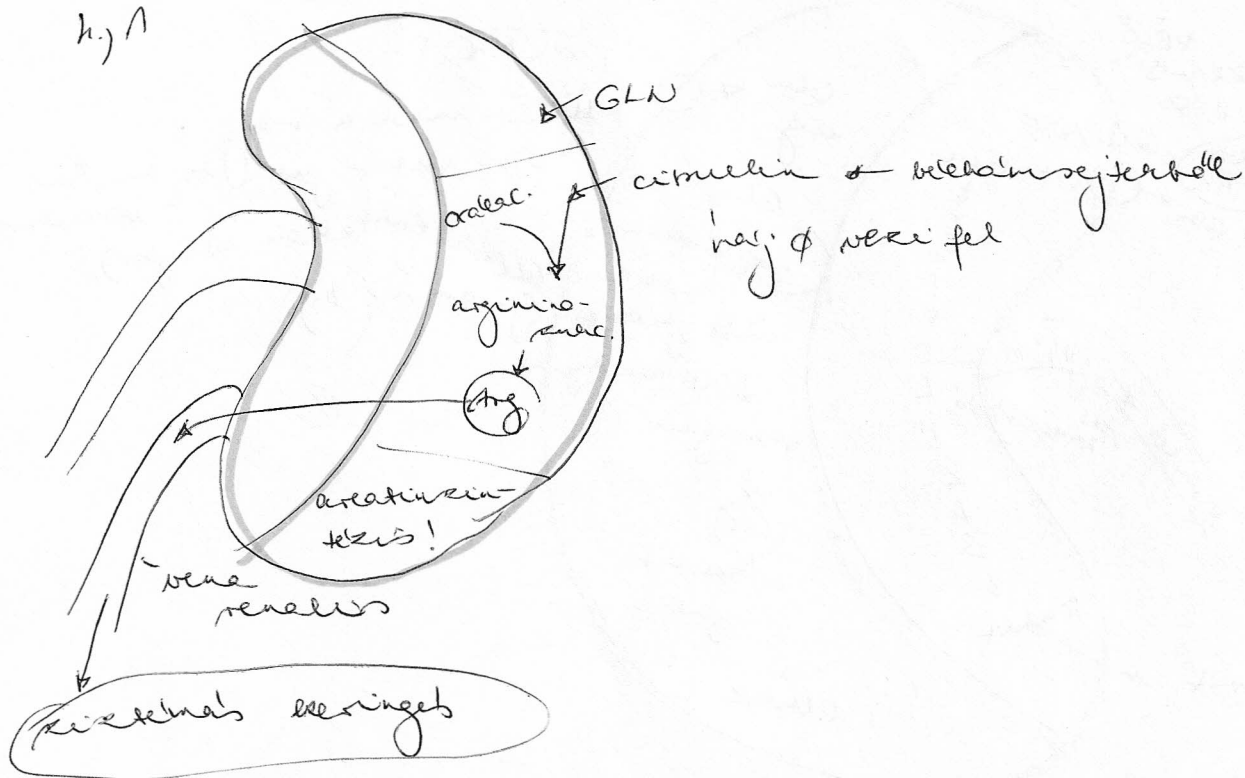 GLN
citrullin ← bélhámsejtekből
máj ∅ veszi fel
oxálac.
arginino-
szukc.
Arg
kreatinszin-
tézis!
vena
renalis
szisztémás keringés